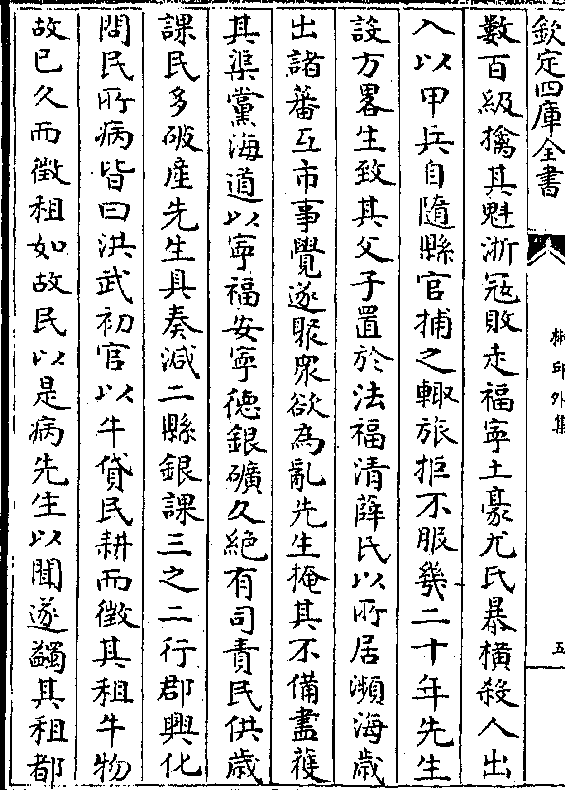 欽定四庫全書
椒邱外集
五
數百級擒其魁浙冦敗走福寧土豪尤氏暴橫殺人出
入以甲兵自隨縣官捕之輙旅拒不服幾二十年先生
設方畧生致其父子置於法福清薛氏以所居瀕海歲
出諸蕃互市事覺遂聚衆欲為亂先生掩其不備盡獲
其渠黨海道以寧福安寧徳銀礦久絕有司責民供歲
課民多破産先生具奏減二縣銀課三之二行郡興化
問民所病皆曰洪武初官以牛貸民耕而徵其租牛物
故已久而徵租如故民以是病先生以聞遂蠲其租都